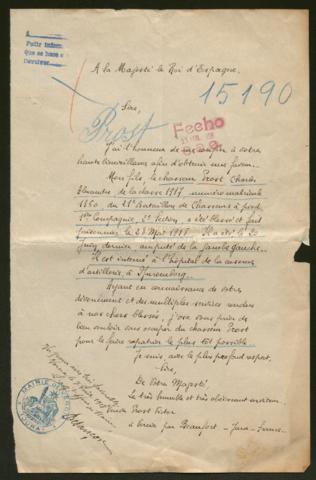 A la Majesté le Roi d'Espagne,
15190
Sire,
Prost
Fecho
J'ai l'honneur de recourir à votre
haute bienveillance afin d'obtenir une faveur.
Mon fils, le chasseur Prost Charles
de la classe 1917, numéro matricule
du 21e Bataillon de Chasseurs à pied,
Compagnie, 2e Section, a été blessé et fait
prisonnier le 27 Mai 1918. Il a été le
Juin dernier, amputé de la jambe gauche.
Il est interné à l'hôpital de la caserne
d'artillerie, à Nuremberg.
Ayant eu connaissance de votre
dévouement et des multiples services rendus
à nos chers blessés, j'ose vous prier de
bien vouloir vous occuper du chasseur Prost
pour le faire rapatrier le plus tôt possible.
Je suis, avec le plus profond respect,
Sire,
De Votre Majesté,
Le très humble et très obéissant serviteur.
Prost Victor
à par Beaufort - Jura - France.
MAIRIE
JURA